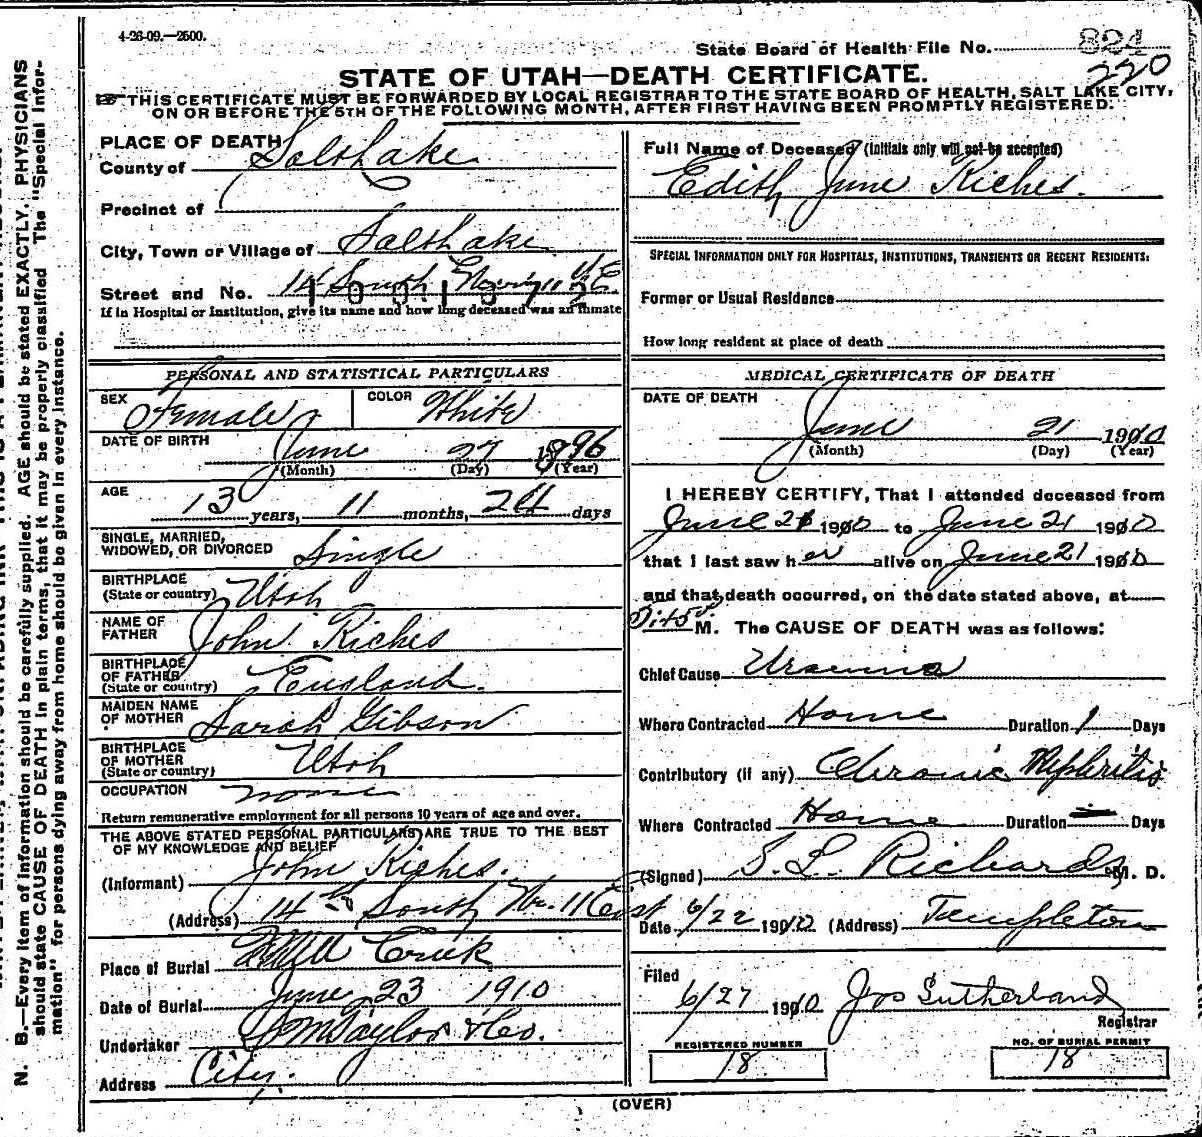 4-26-09.—2500.
State Board of Health File No. 824
220
STATE OF UTAH—DEATH CERTIFICATE.
THIS CERTIFICATE MUST BE FORWARDED BY LOCAL REGISTRAR TO THE STATE BOARD OF HEALTH, SALT LAKE CITY,
ON OR BEFORE THE 5TH OF THE FOLLOWING MONTH, AFTER FIRST HAVING BEEN PROMPTLY REGISTERED.
PLACE OF DEATH
County of Salt Lake
Precinct of
City, Town or Village of Salt Lake
Street and No. 14 South
If in Hospital or Institution, give its name and how long deceased was an inmate
PERSONAL AND STATISTICAL PARTICULARS
SEX Female COLOR White
DATE OF BIRTH June 27 1896
(Month) (Day) (Year)
AGE
13 years, 11 months, 24 days
SINGLE, MARRIED,
WIDOWED, OR DIVORCED Single
BIRTHPLACE
(State or country) Utah
NAME OF
FATHER John Riches
BIRTHPLACE
OF FATHER
(State or country) England.
MAIDEN NAME
OF MOTHER Sarah Gibson
BIRTHPLACE
OF MOTHER
(State or country) Utah
OCCUPATION none
Return remunerative employment for all persons 10 years of age and over.
THE ABOVE STATED PERSONAL PARTICULARS ARE TRUE TO THE BEST
OF MY KNOWLEDGE AND BELIEF
(Informant) John Riches.
(Address) 14th South Nr. 11 East
Place of Burial Mill Creek
Date of Burial June 23 1910
Undertaker S M Taylor & Co.
Address City.
Full Name of Deceased (Initials only will not be accepted)
Edith June Riches.
SPECIAL INFORMATION ONLY FOR HOSPITALS, INSTITUTIONS, TRANSIENTS OR RECENT RESIDENTS:
Former or Usual Residence
How long resident at place of death
MEDICAL CERTIFICATE OF DEATH
DATE OF DEATH
June 21 1910
(Month) (Day) (Year)
I HEREBY CERTIFY, That I attended deceased from
June 21 1910 to June 21 1910
that I last saw her alive on June 21 1910
and that death occurred, on the date stated above, at
M. The CAUSE OF DEATH was as follows:
Chief Cause Uraemia
Where Contracted Home Duration 1 Days
Contributory (if any) Chronic Nephritis
Where Contracted Home Duration — Days
(Signed) S. L. Richards M. D.
Date 6/22 1910 (Address) Templeton
Filed
6/27 1910 Jos Sutherland
Registrar
REGISTERED NUMBER
18
NO. OF BURIAL PERMIT
18
(OVER)
N. B.—Every item of information should be carefully supplied. AGE should be stated EXACTLY. PHYSICIANS
should state CAUSE OF DEATH in plain terms, that it may be properly classified The "Special Infor-
mation" for persons dying away from home should be given in every instance.